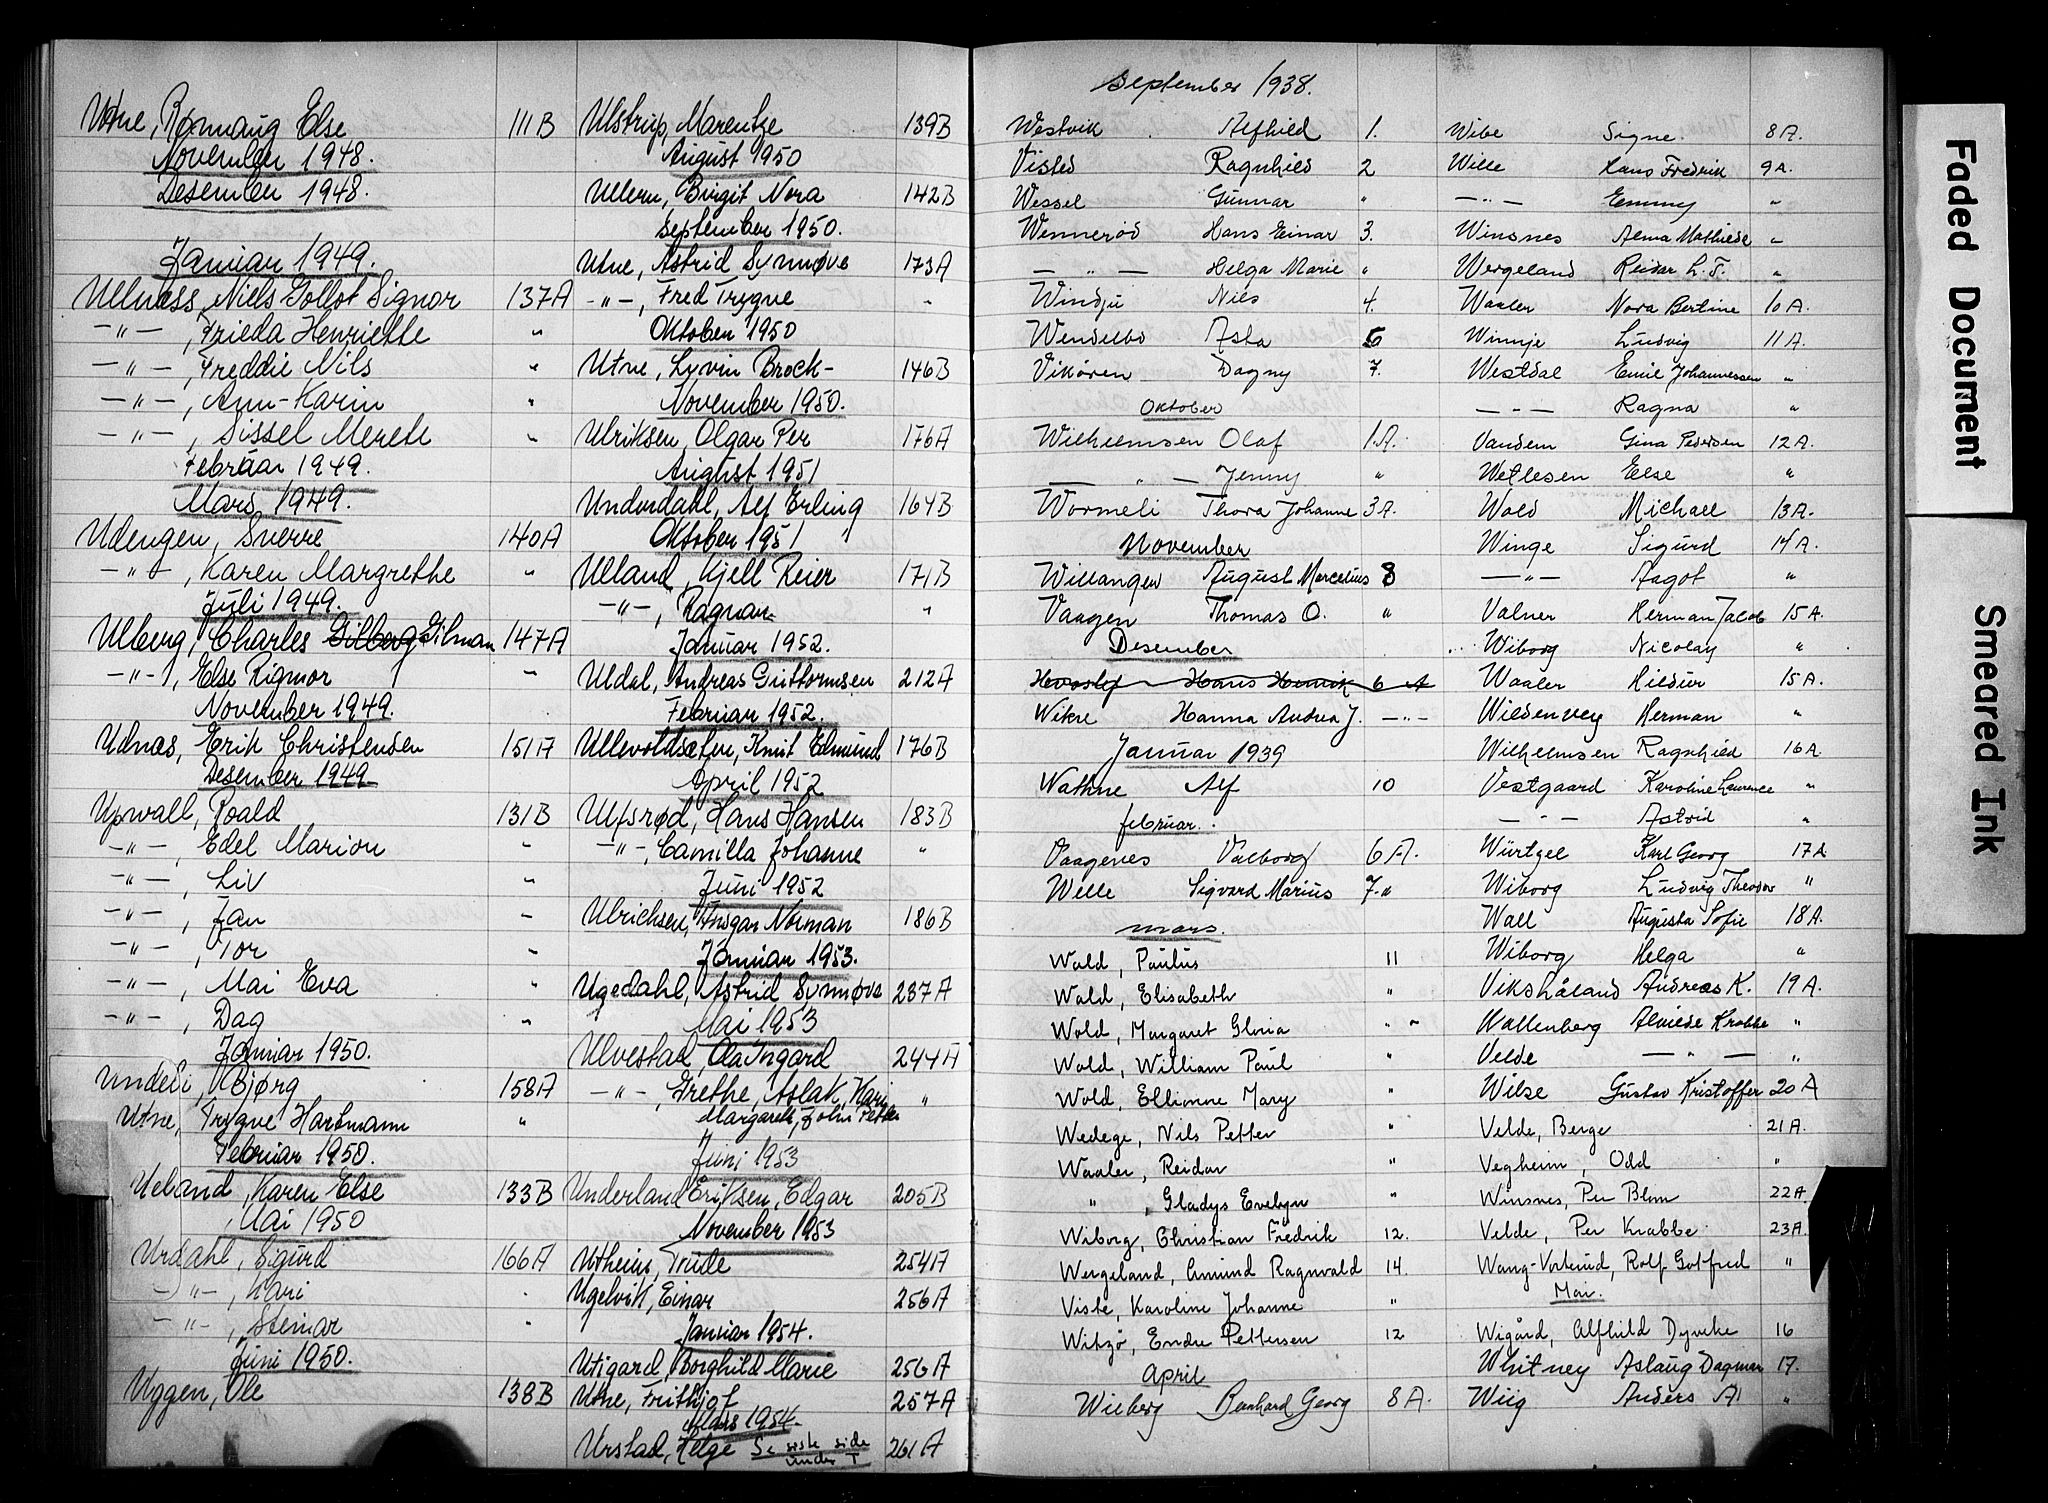 Utne, Rønnaug Else 111B
November 1948.
Desember 1948.
Januar 1949.
Ullness, Niels Gollot Signor 137A
-"-, Frieda Henriette "
-"-, Freddie Nils "
-"-, Ann-Karin "
-"-, Sissel Merete "
Februar 1949.
Mars 1949.
Udengen, Sverre 140A
-"-, Karen Margrethe "
Juli 1949.
Ulberg, Charles Gilberg Gilman 147A
-"-, Else Rigmor "
November 1949.
Udnæs, Erik Christensen 151A
Desember 1949
Upwall, Roald 131B
-"-, Edel Marion "
-"-, Liv "
-"-, Jan "
-"-, Tor "
-"-, Mai Eva "
-"-, Dag "
Januar 1950.
Undeli, Bjørg 158A
Utne, Trygve Hartmann "
Februar 1950.
Ueland, Karen Else 133B
Mai 1950
Urdahl, Sigurd 166A
-"-, Kari "
-"-, Steinar "
Juni 1950.
Uggen, Ole 138B
Ulstrup, Marentze 139B
August 1950
Ullern, Birgit Nora 142B
September 1950.
Utne, Astrid Synnøve 173A
-"-, Fred Trygve "
Oktober 1950
Utne, Lyvin Brock- 146B
November 1950.
Ulriksen, Olgar Per 176A
August 1951
Underdahl, Alf Erling 164B
Oktober 1951
Ulland, Kjell Reier 171B
-"-, Ragnar "
Januar 1952.
Uldal, Andreas Guttormsen 212A
Februar 1952.
Ullevoldsæter, Knut Edmund 176B
April 1952
Ulfsrød, Hans Hansen 183B
-"-, Camilla Johanne "
Juni 1952
Ulrichsen, Ansgar Norman 186B
Januar 1953.
Ugedahl, Astrid Synnøve 237A
Mai 1953
Ulvestad, Ola Ingard 244A
-"-, Grethe, Aslak, Kari "
Margareth, John Petter
Juni 1953
Underland Eriksen, Edgar 205B
November 1953
Utheim, Trude 254A
Ugelvik, Einar 256A
Januar 1954.
Utigard, Borghild Marie 256A
Utne, Frithjof 257A
Mars 1954.
Urstad, Helge Se siste side under T 261A
September 1938.
Westvik Alfhild 1.
Visted Ragnhild 2
Wessel Gunnar "
Wennerød Hans Einar 3.
— " — Helga Marie "
Windju Nils 4.
Wendelbo Asta 6
Vikören Dagny 7.
Oktober
Wilhelmsen Olaf 1.A.
— " — Jenny "
Wormeli Thora Johanne 3A.
November
Willanger August Marcelius 8
Vaagen Thomas O. "
Desember
Hevoslef Hans Henrik 6 A
Wikre Hanna Andrea J. -"-
Januar 1939
Wathne Alf 10
februar.
Vaagenes Valborg 6A.
Welle Sigvard Marius 7. "
mars.
Wold, Paulus 11
Wold, Elisabeth "
Wold, Margaret Gloria "
Wold, William Paul "
Wold, Ellionne Mary "
Wedege, Nils Petter "
Waaler, Reidar "
" , Gladys Evelyn "
Wiborg, Christian Fredrik 12.
Wergeland, Amund Ragnvald 14.
Viste, Karoline Johanne "
Witzö, Endre Pettersen 12
April
Wieberg Bernhard Georg 8A.
Wibe Signe. 8A.
Wille Hans Fredrik 9A.
— " — Emmy "
Winsnes Alma Mathilde "
Wergeland Reidar L. F. "
Waaler Nora Bertine 10A.
Winnje Ludvig 11A.
Westdal Emil Johannessen "
— " — Ragna "
Vandem Gina Pedersen 12A.
Wetlesen Else "
Wold Michael 13A.
Winge Sigurd 14A.
— " — Aagot "
Valner Herman Jacob 15A.
Wiborg Nicolay "
Waaler Hildur 15A.
Wildenvey Herman "
Wilhelmsen Ragnhild 16A.
Vestgaard Karoline Laurence "
— " — Astrid "
Würtzel Karl Georg 17A
Wiborg Ludvig Theodor "
Wall Augusta Sofie 18A.
Wiborg Helga "
Vikshåland Andreas K. 19A.
Wallenberg Alvilde Krabbe "
Velde — " — "
Wilse Gustav Kristoffer 20A
Velde, Berge 21A.
Vegheim, Odd "
Winsnes, Per Blom 22A.
Velde, Per Krabbe 23A.
Wang-Vorlund, Rolf Gotfred "
Mai.
Wigård, Alfhild Dyveke 16
Whitney Aslaug Dagmar 17.
Wiig Anders A "
Faded Document
Smeared Ink